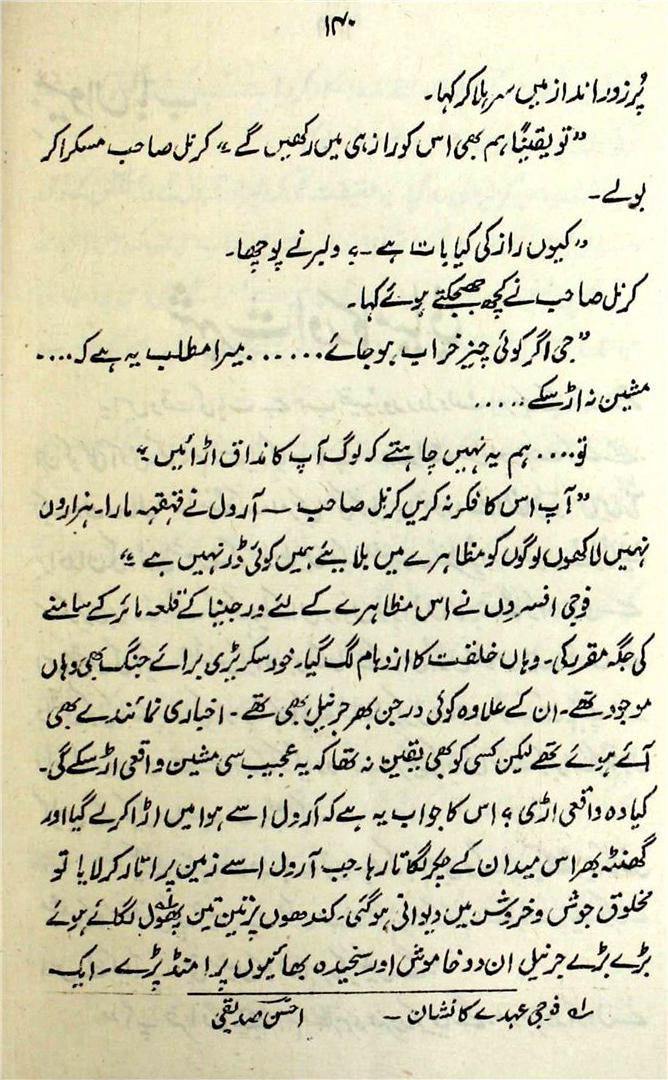 ۱۴۰
پُرزور انداز میں سر ہلا کر کہا۔
”تو یقیناً ہم بھی اس کو راز ہی میں رکھیں گے“ کرنل صاحب مسکرا کر
بولے۔
”کیوں راز کی کیا بات ہے۔؟ ولبر نے پوچھا۔
کرنل صاحب نے کچھ جھجکتے ہوئے کہا۔
”جی اگر کوئی چیز خراب ہو جائے...... میرا مطلب یہ ہے کہ....
مشین نہ اڑ سکے.....
تو.... ہم یہ نہیں چاہتے کہ لوگ آپ کا مذاق اڑائیں“
”آپ اس کا فکر نہ کریں کرنل صاحب — آرول نے قہقہہ مارا۔ ہزاروں
نہیں لاکھوں لوگوں کو مظاہرے میں بلایئے ہمیں کوئی ڈر نہیں ہے“
فوجی افسروں نے اس مظاہرے کے لئے ورجینیا کے قلعہ مائر کے سامنے
کی جگہ مقرر کی۔ وہاں خلقت کا ازدہام لگ گیا۔ خود سکریٹری برائے جنگ بھی وہاں
موجود تھے۔ ان کے علاوہ کوئی درجن بھر جرنیل بھی تھے۔ اخباری نمائندے بھی
آئے ہوئے تھے لیکن کسی کو بھی یقین نہ تھا کہ یہ عجیب سی مشین واقعی اڑ سکے گی۔
کیا وہ واقعی اڑی؟ اس کا جواب یہ ہے کہ آرول اسے ہوا میں اڑا کر لے گیا اور
گھنٹہ بھر اس میدان کے چکر لگاتا رہا۔ جب آرول اسے زمین پر اتار کر لایا تو
مخلوق جوش و خروش میں دیوانی ہو گئی۔ کندھوں پر تین تین پھول لہ لگائے ہوئے
بڑے بڑے جرنیل ان دو خاموش اور سنجیدہ بھائیوں پر امنڈ پڑے۔ ایک
لہ فوجی عہدے کا نشان — احسن صدیقی